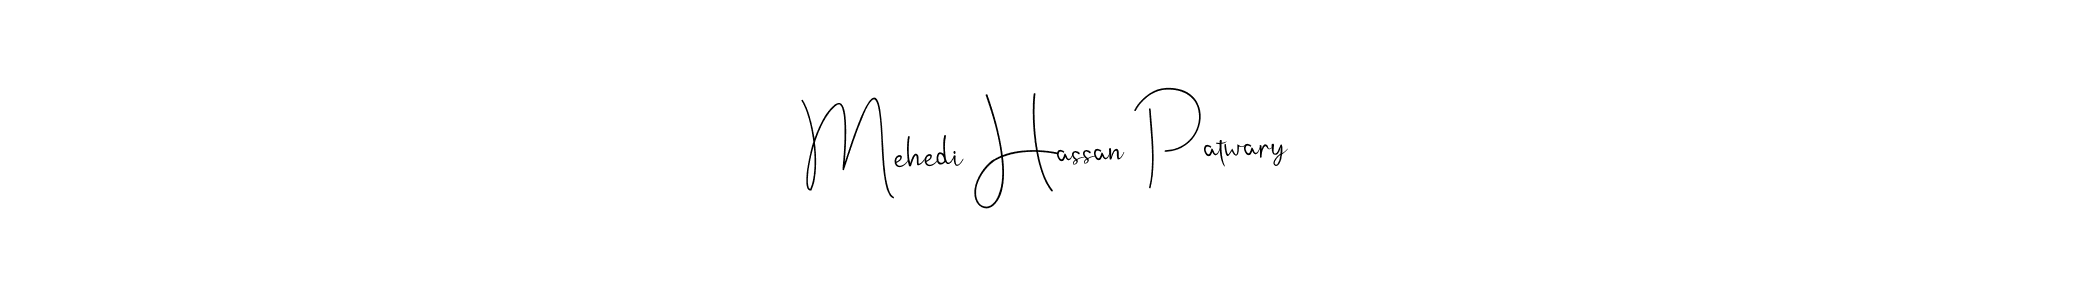 Mehedi Hassan Patwary